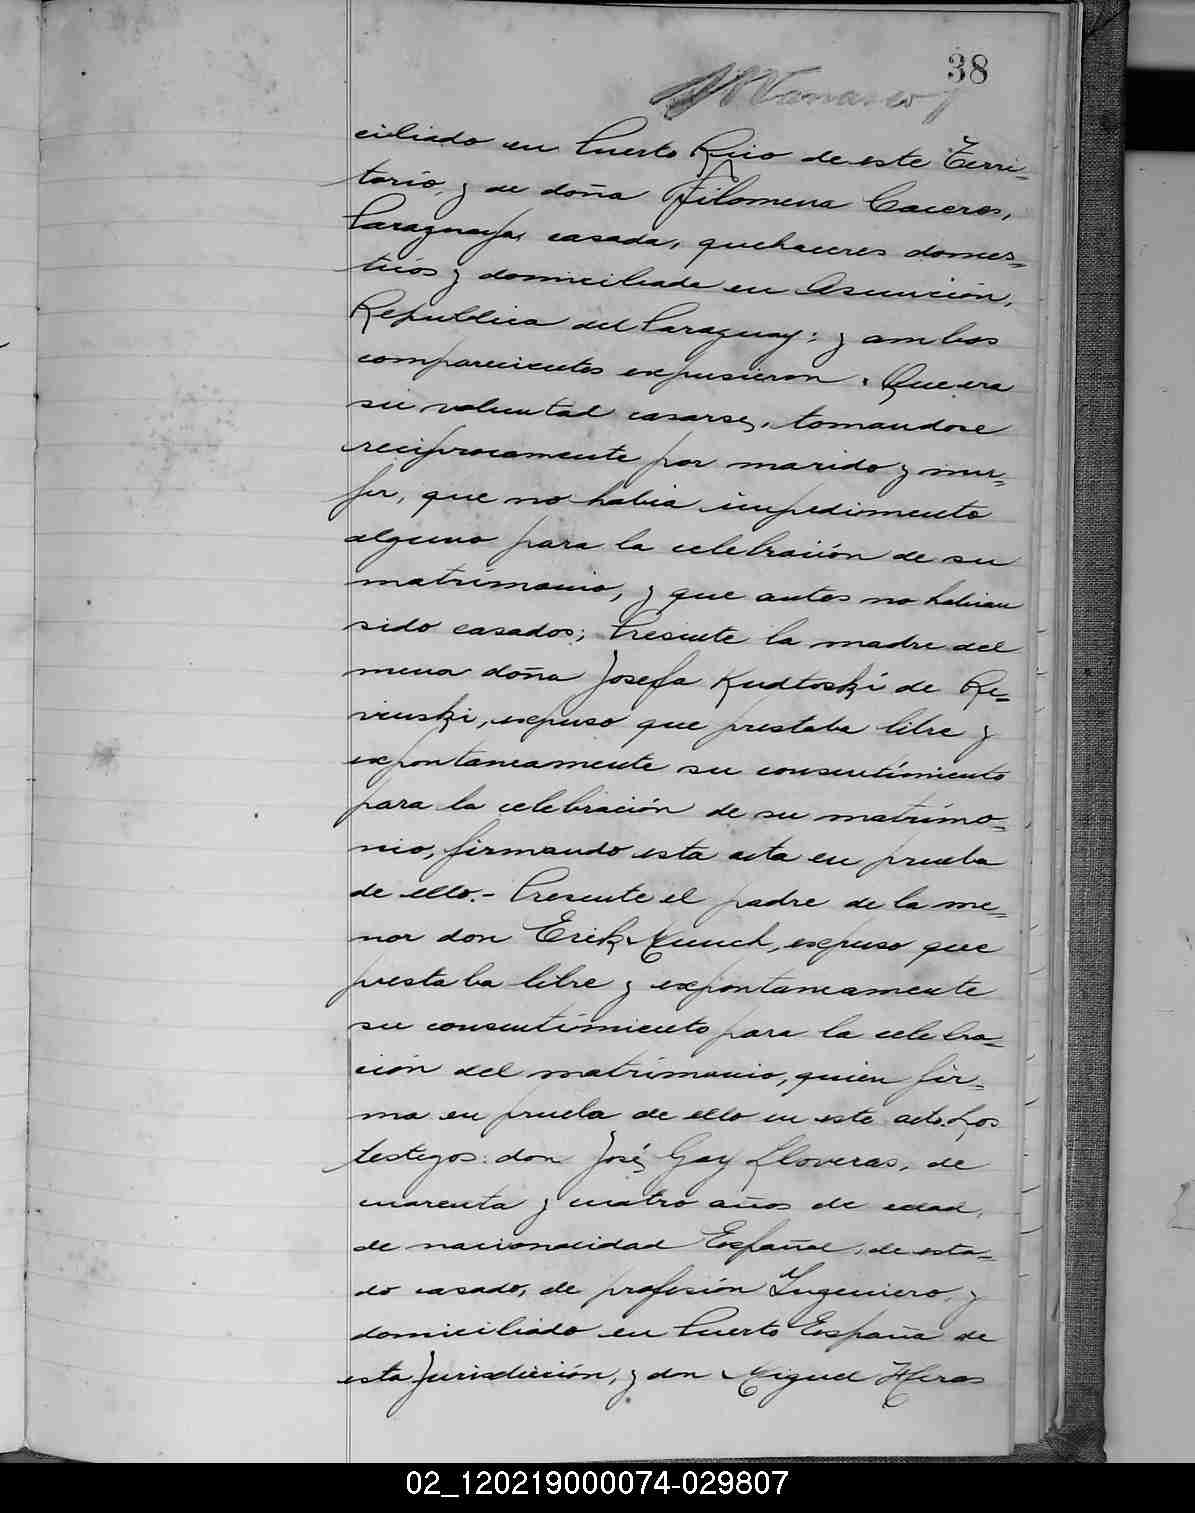 38
ciliado en Puerto Rico de este Terri-
torio, y de doña Filomena Caceres,
Paraguaya, casada, quehaceres domes-
ticos y domiciliada en Asunción,
Republica del Paraguay: y ambos
comparecientes expusieron: Que era
su voluntad casarse, tomandose
reciprocamente por marido y mu-
jer, que no habia impedimento
alguno para la celebración de su
matrimonio, y que antes no habian
sido casados; Presente la madre del
menor doña Josefa Kudtoski de Re-
vinski, expuso que prestaba libre y
expontaneamente su consentimiento
para la celebración de su matrimo-
nio, firmando esta acta en prueba
de ello.- Presente el padre de la me-
nor don Erik Munch, expuso que
prestaba libre y expontaneamente
su consentimiento para la celebra-
ción del matrimonio, quien fir-
ma en prueba de ello en este acto. Los
testigos: don José Gay Lloveras, de
cuarenta y cuatro años de edad,
de nacionalidad Español, de esta-
do casado, de profesión Ingeniero, y
domiciliado en Puerto España de
esta jurisdicción, y don Miguel Heras
02_120219000074-029807